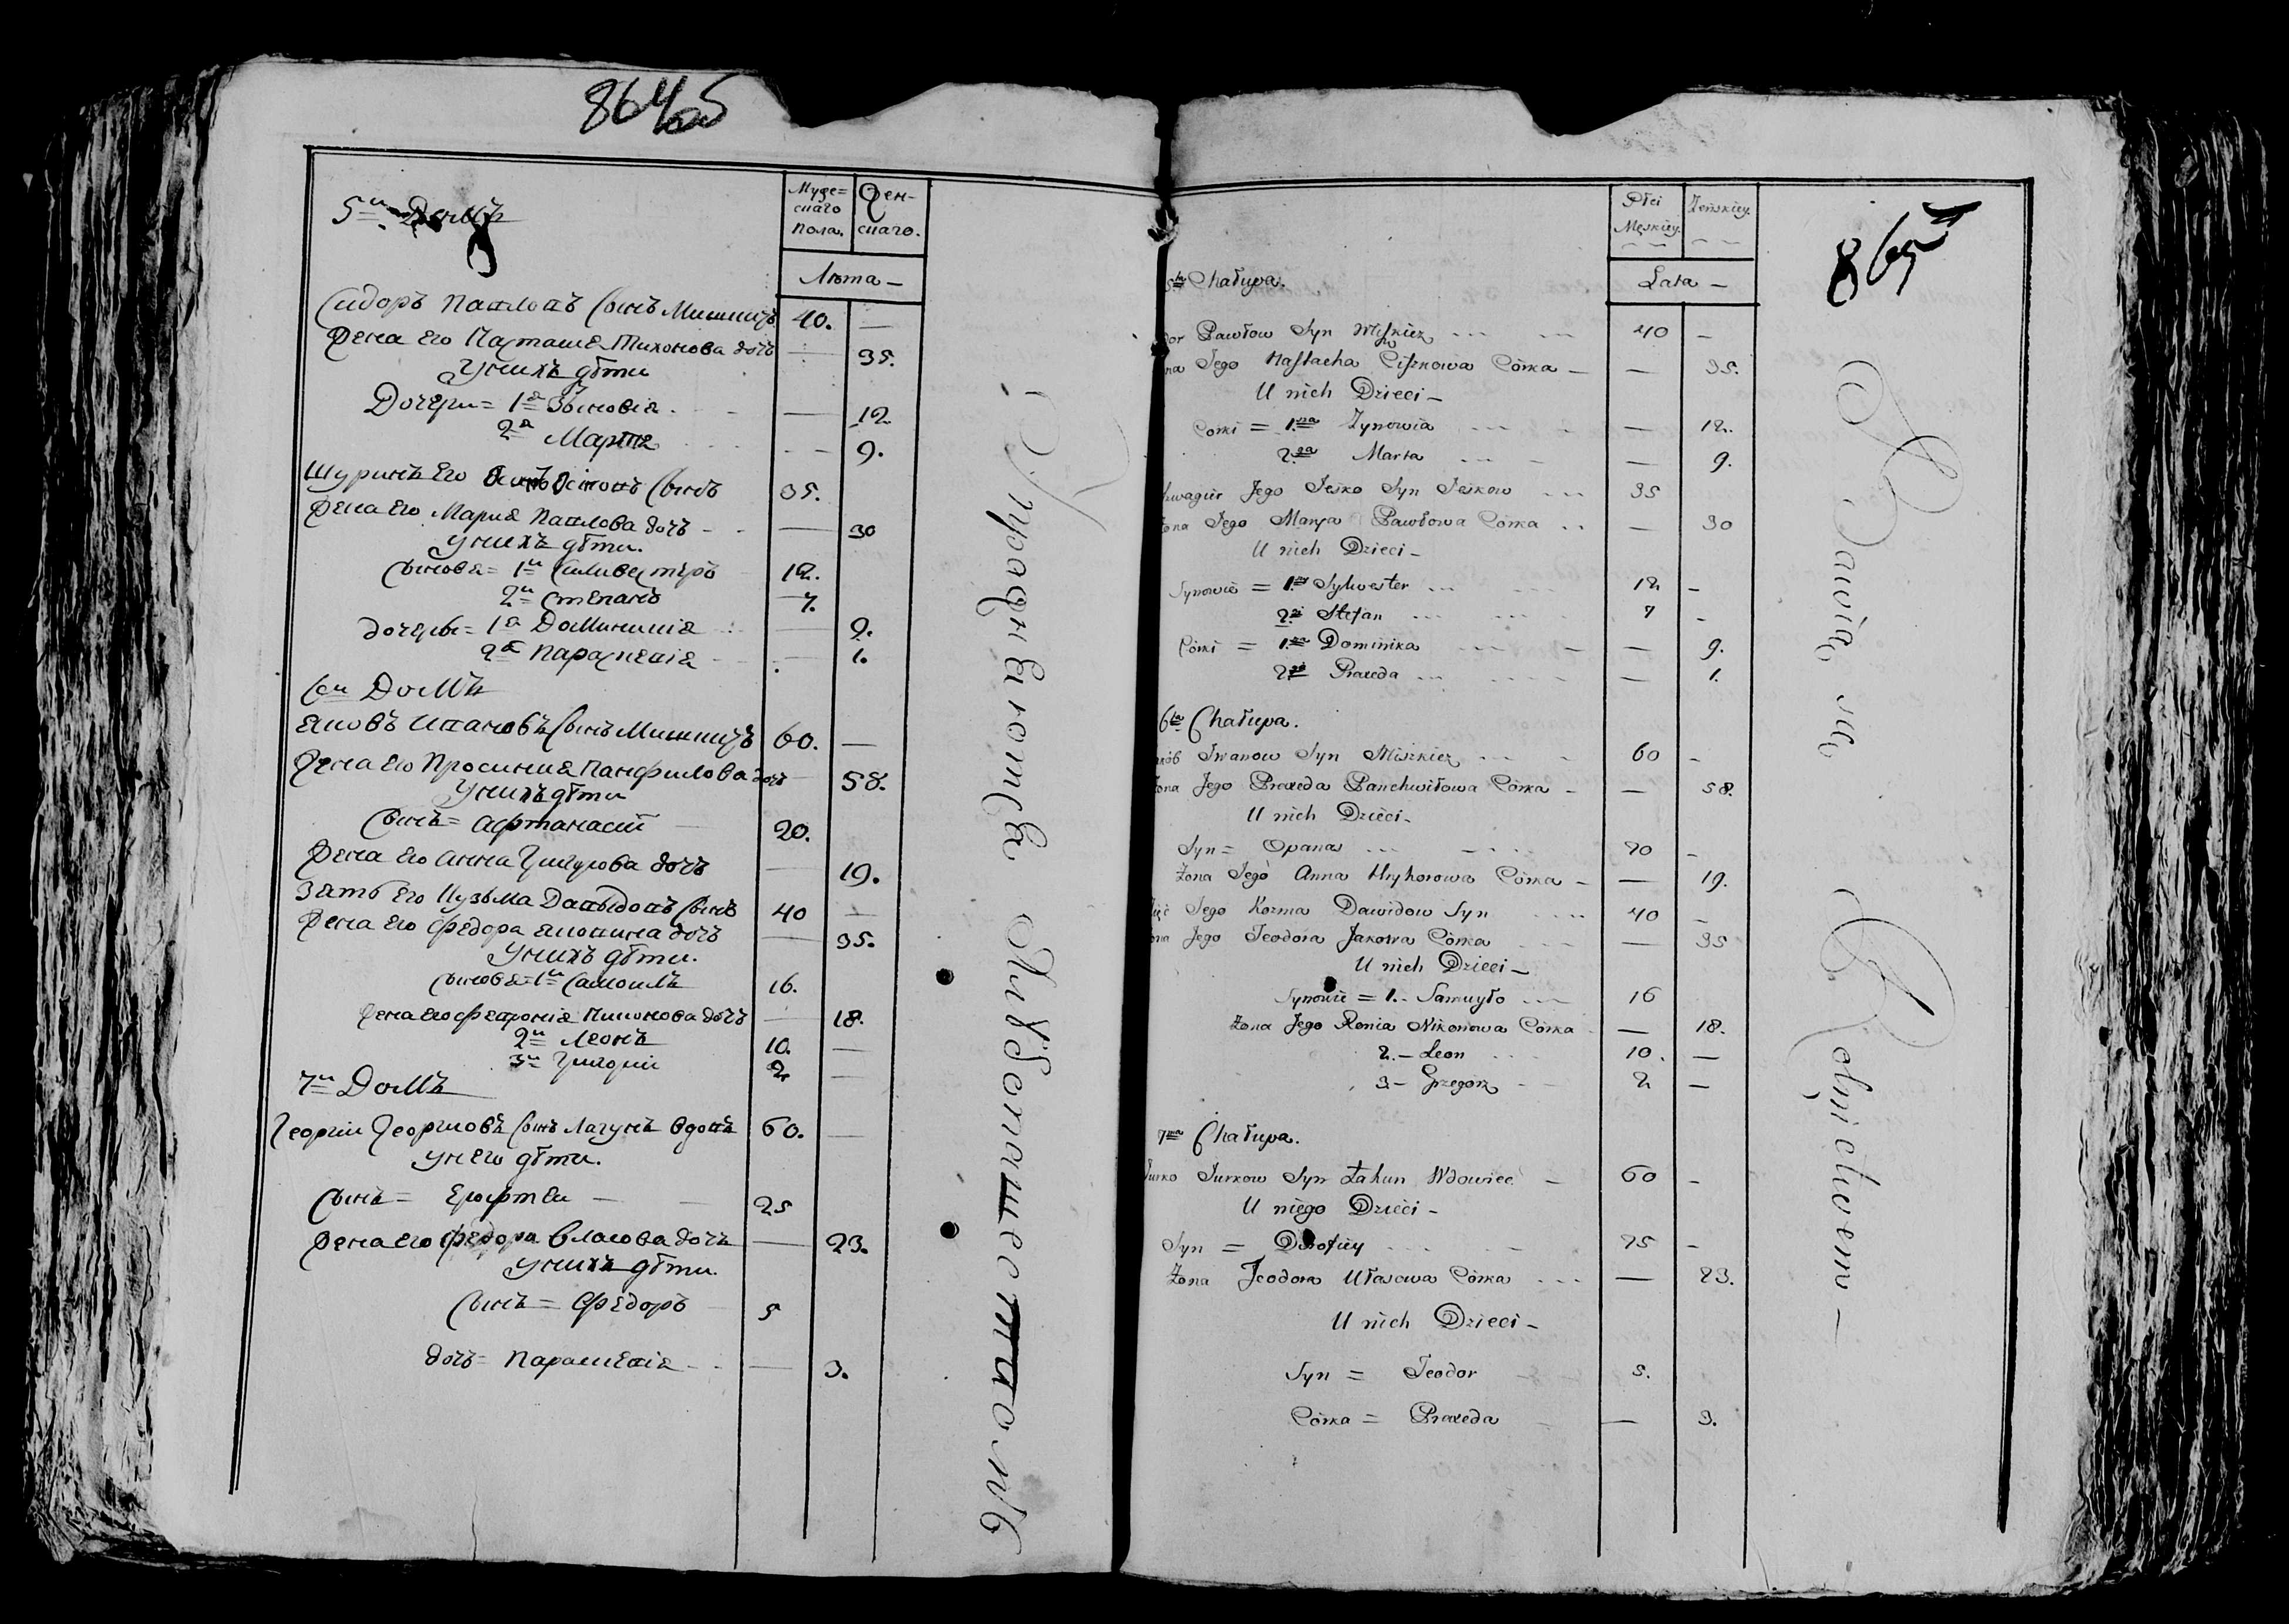 5й Домъ
Муже=
скаго
пола.
Жен-
скаго.
Лѣта —
Сидоръ Павловъ Сынъ Мишкичъ 40. —
Жена Его Настасія Тихонова дочь — 35.
У нихъ дѣти
Дочери = 1я Зѣновія — 12.
2я Марта — 9.
Шуринъ Его Сынъ 35.
Жена Его Марія Павлова дочь — 30
У нихъ дѣти.
Сыновья = 1й Силивестръ 12.
2й Степанъ 7.
дочеры = 1я Доминикія — 9.
2я Параскевія — 1.
6й Домъ
Яковъ Ивановъ Сынъ Мишкичъ 60. —
Жена Его Просиния Панфилова дочь — 58.
У нихъ дѣти
Сынъ = Афтанасій 20.
Жена Его Анна Григорова дочь — 19.
Зять Его Кузьма Давыдовъ Сынъ 40 —
Жена Его Федора Яковина дочь — 35.
У нихъ дѣти.
Сыновья = 1й Самоилъ 16.
Жена Его Феврония Никонова дочь — 18.
2й Леонъ 10. —
3й Григорій 2. —
7й Домъ
Георгій Георгиовъ Сынъ Лагунъ Вдовъ 60. —
У него дѣти.
Сынъ = Ерофтей 25
Жена Его Федора Власова дочь — 23.
У нихъ дѣти.
Сынъ = Федоръ 5
дочь = Параскевія — 3.
Упражняются Хлѣбопашествомъ
Płci
Męskiey.
Żeńskiey.
Lata —
5ta Chałupa.
dor Pawłow Syn Miszkicz 40 —
na Jego Nastacha Ciszkowa Córka — — 35.
U nich Dzieci —
Córki = 1sza Zynowia — 12.
2ga Marta — 9.
zwagier Jego Jeśko Syn Jeśkow 35
żona Jego Marya Pawłowa Córka — 30
U nich Dzieci —
Synowie = 1szy Sylwester 12 —
2gi Stefan 7 —
Córki = 1sza Dominika — 9.
2ga Praxeda — 1.
6ta Chałupa.
kób Iwanow Syn Miszkicz 60 —
żona Jego Praxeda Panchwiłowa Córka — — 58.
U nich Dzieci —
Syn = Opanas 20 —
Żona Jego Anna Hryhorowa Córka — — 19.
ięć Jego Kozma Dawidow Syn 40 —
ona Jego Teodora Jakowa Córka — 35
U nich Dzieci —
Synowie = 1. - Samuyło 16
Żona Jego Ronia Nikonowa Córka — 18.
2. — Leon 10. —
3 — Grzegorz 2 —
7ma Chałupa.
Jurko Jurkow Syn Łahun Wdowiec — 60 —
U niego Dzieci —
Syn = Dorofiey 25 —
Żona Teodora Ułasowa Córka — 23.
U nich Dzieci —
Syn = Teodor 5.
Córka = Praxeda — 3.
Bawią się Rolnictwem —